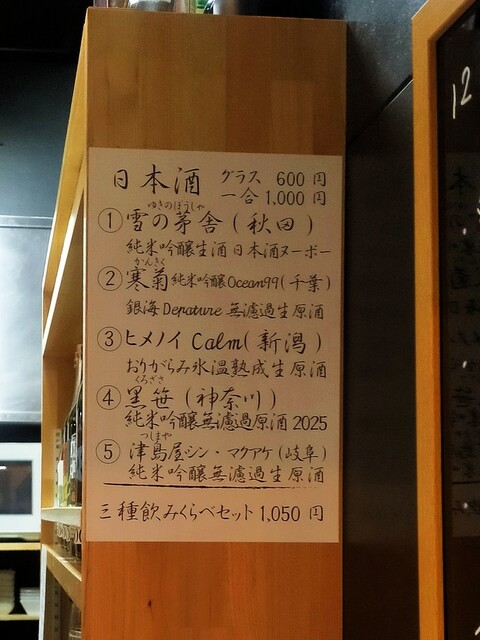 日本酒 グラス 600 円
一合 1,000 円
ゆきのぼうしゃ
① 雪の茅舎 (秋田)
純米吟醸生酒 日本酒ヌーボー
かんきく
② 寒菊 純米吟醸 Ocean99(千葉)
銀海 Depature 無濾過生原酒
③ ヒメノイ Calm(新潟)
おりがらみ氷温熟成生原酒
くろざさ
④ 黒笹 (神奈川)
純米吟醸無濾過原酒 2025
つしまや
⑤ 津島屋シン・マクアケ (岐阜)
純米吟醸無濾過生原酒
三種飲みくらべセット 1,050 円
12